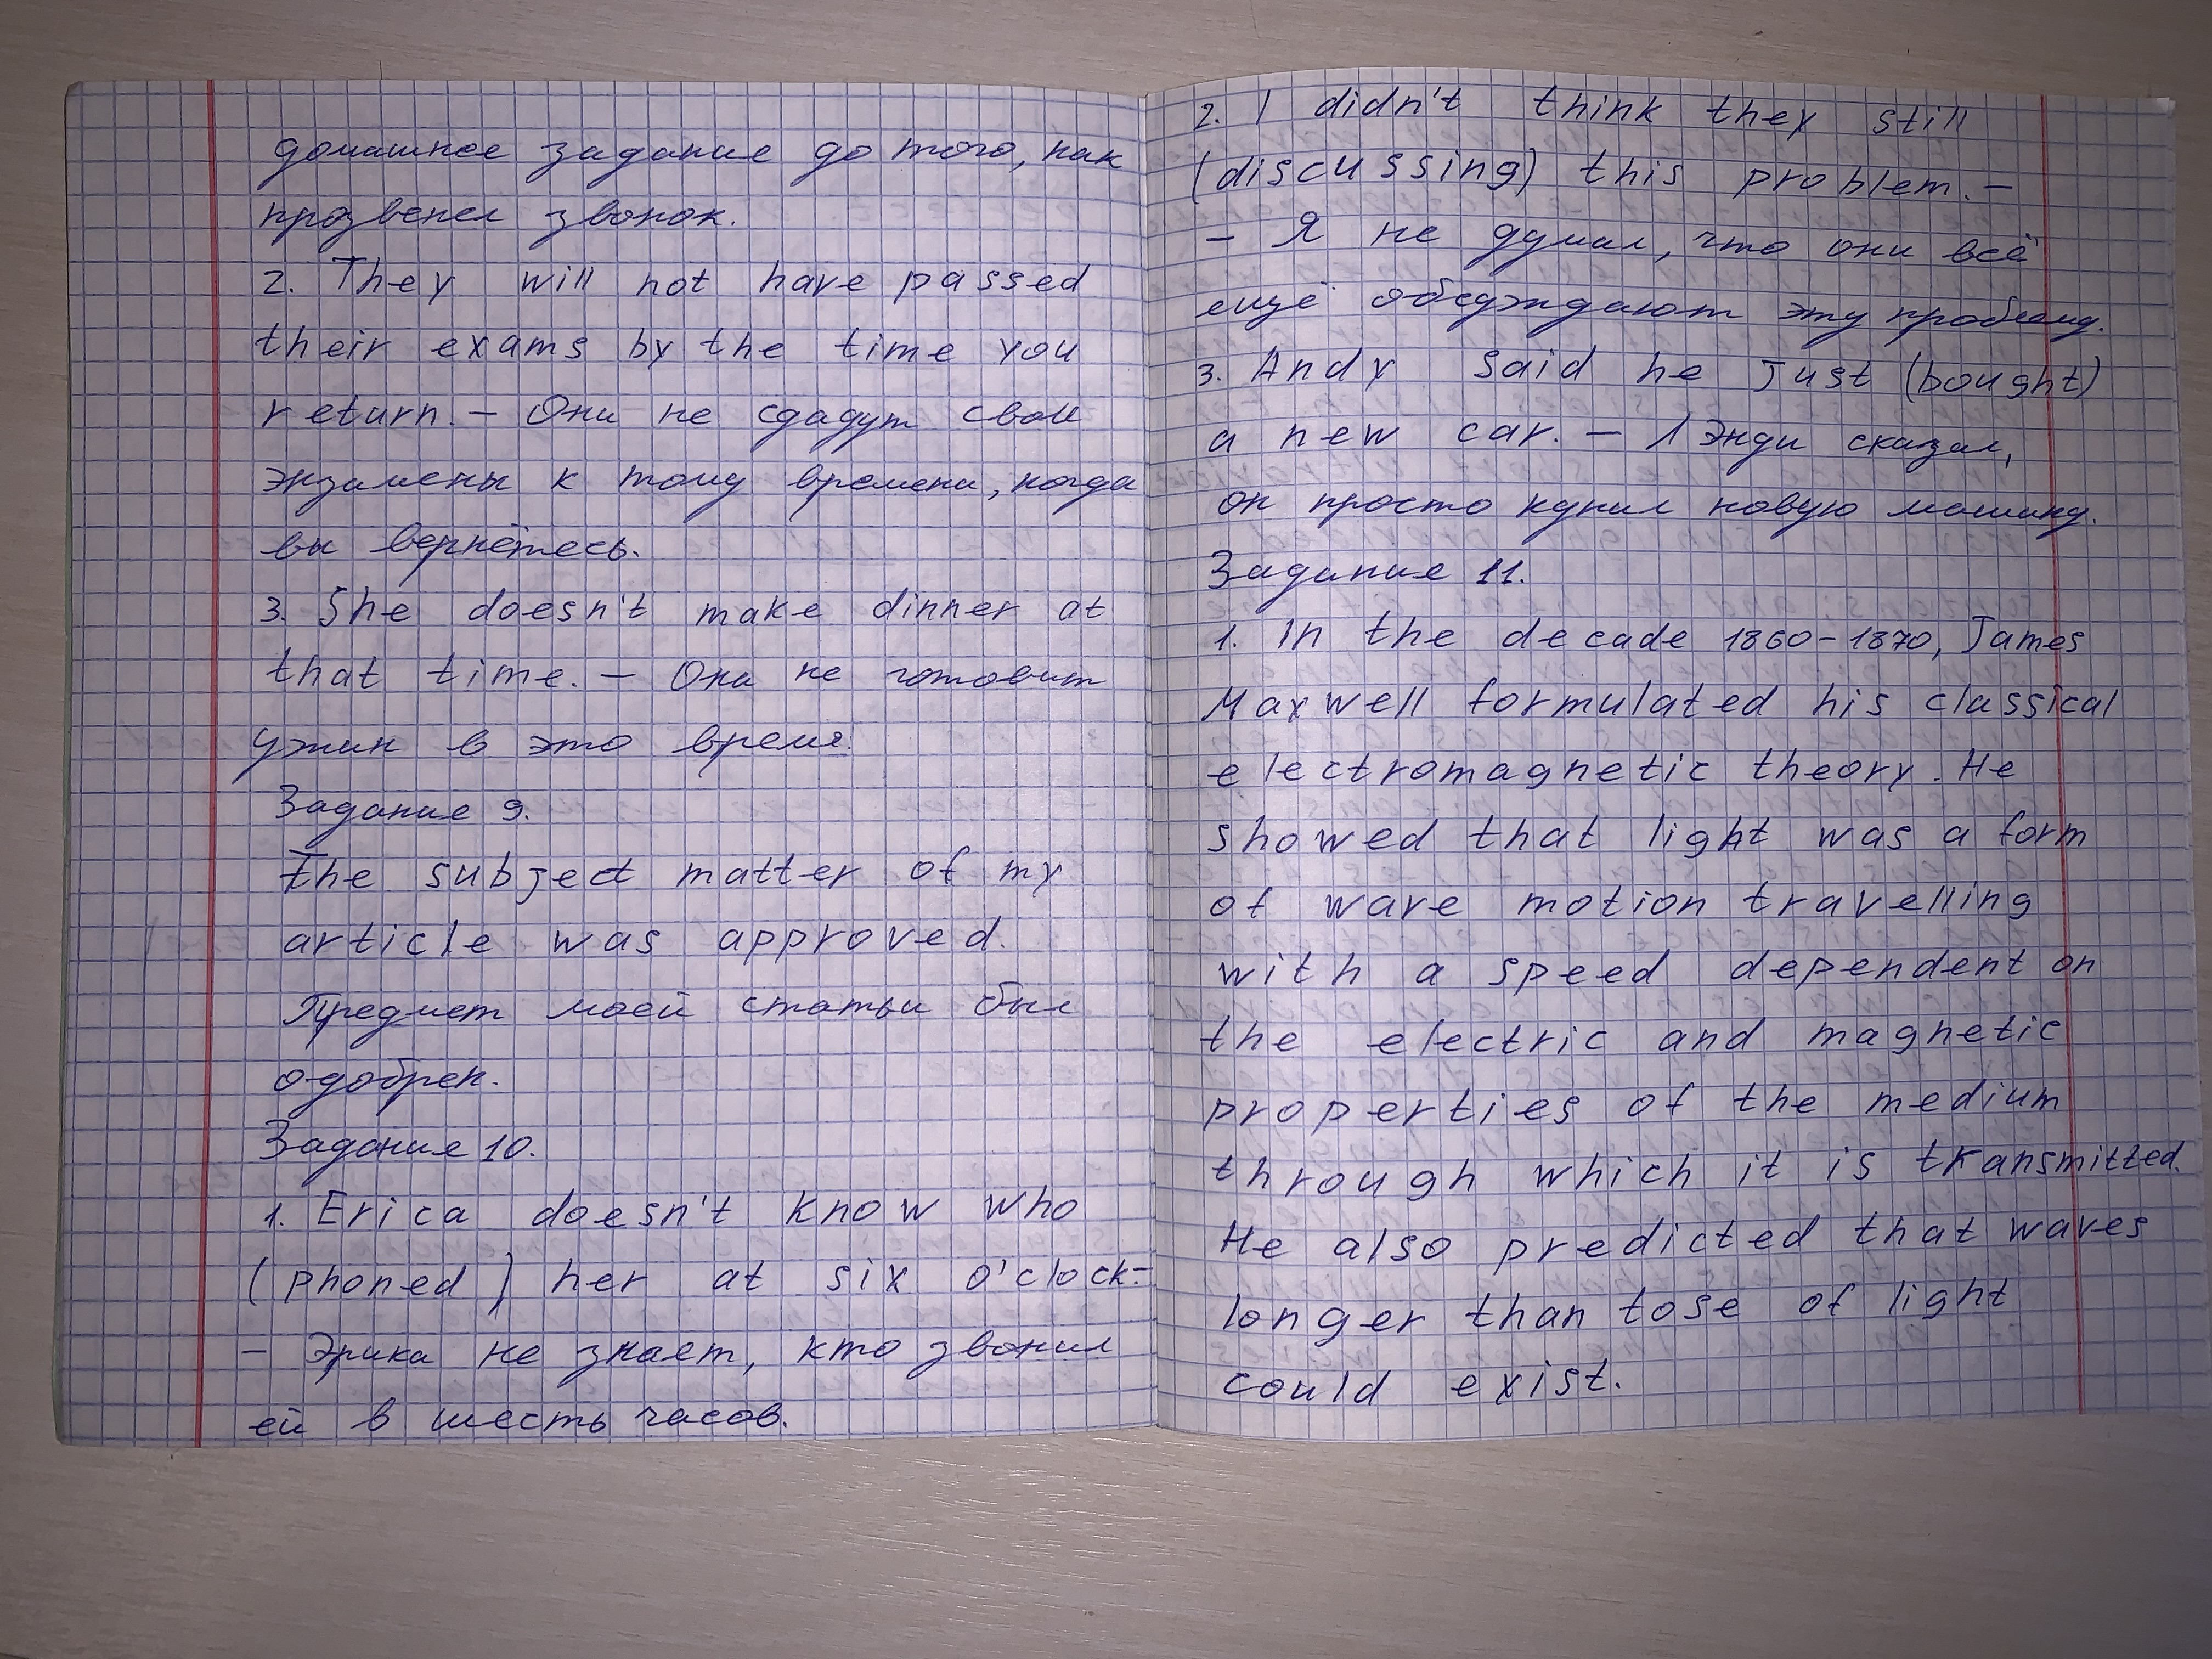 домашнее задание до того, как
прозвенел звонок.
2. They will not have passed
their exams by the time you
return. – Они не сдадут свои
экзамены к тому времени, когда
вы вернётесь.
3. She doesn't make dinner at
that time. – Она не готовит
ужин в это время.
Задание 9.
The subject matter of my
article was approved.
Предмет моей статьи был
одобрен.
Задание 10.
1. Erica doesn't know who
(phoned) her at six o'clock. –
– Эрика не знает, кто звонил
ей в шесть часов.
2. I didn't think they still
(discussing) this problem. –
– Я не думал, что они всё
ещё обсуждают эту проблему.
3. Andy said he just (bought)
a new car. – Энди сказал,
он просто купил новую машину.
Задание 11.
1. In the decade 1860-1870, James
Maxwell formulated his classical
electromagnetic theory. He
showed that light was a form
of wave motion travelling
with a speed dependent on
the electric and magnetic
properties of the medium
through which it is transmitted.
He also predicted that waves
longer than tose of light
could exist.